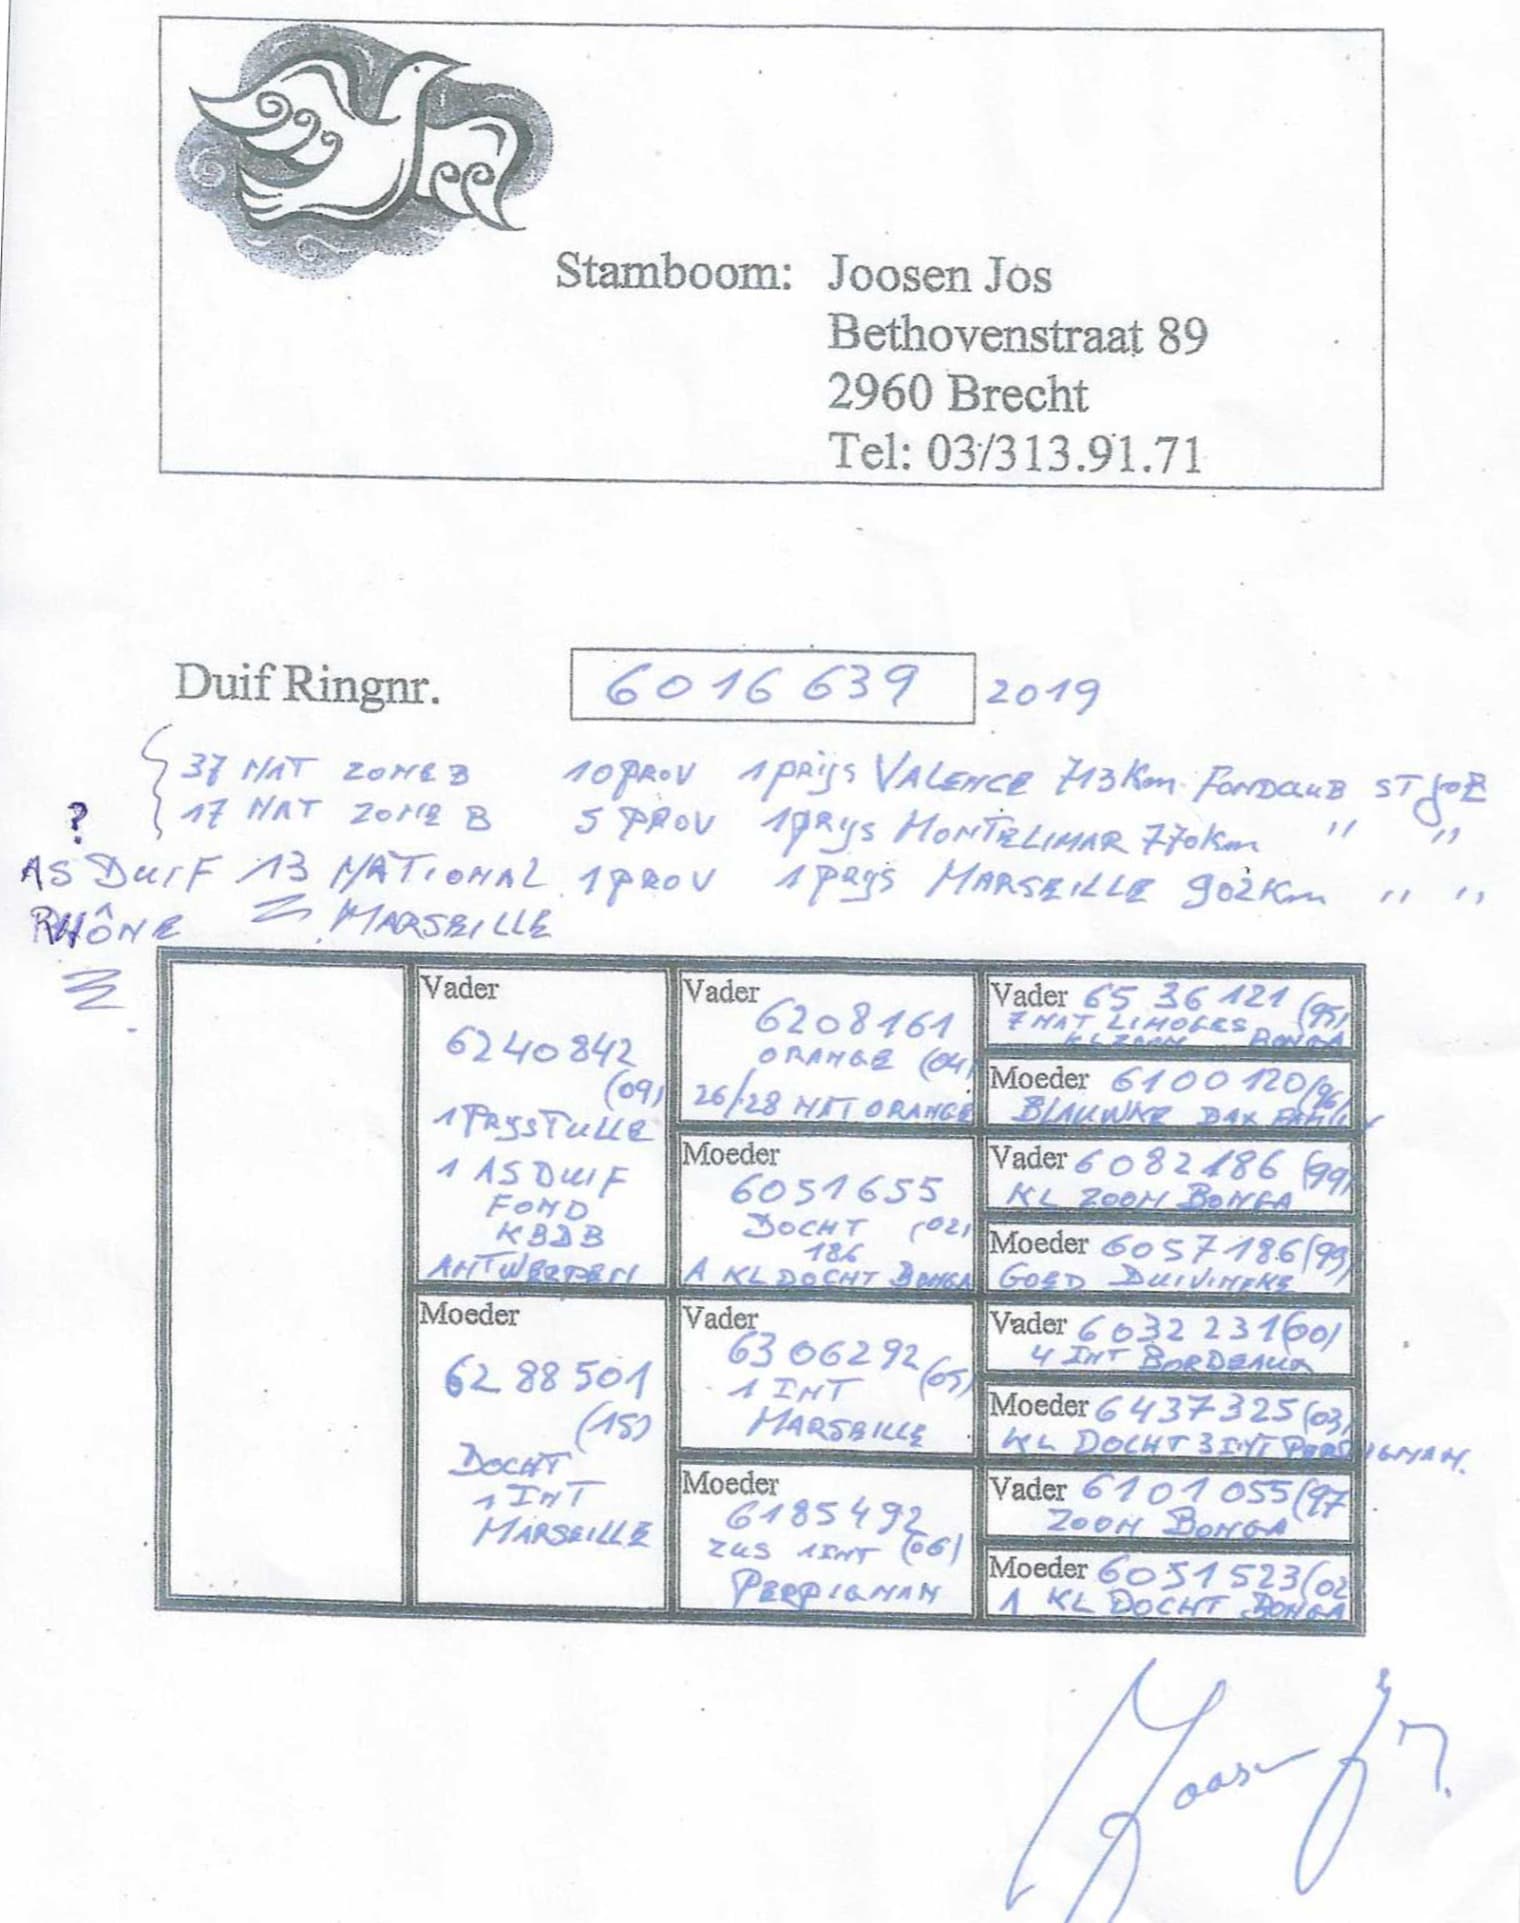 Stamboom: Joosen Jos
Bethovenstraat 89
2960 Brecht
Tel: 03/313.91.71
Duif Ringnr. 6016639 2019
37 NAT ZONE B 10 PROV 1 prijs VALENCE 713 Km FONDCLUB ST JOB
? 17 NAT ZONE B 5 PROV 1 PRYS MONTELIMAR 770 Km " "
AS DUIF 13 NATIONAL 1 PROV 1 PRYS MARSEILLE 902 Km " "
RHÔNE MARSEILLE
Vader
6240842
(09)
1 PRYS TULLE
1 AS DUIF
FOND
KBDB
ANTWERPEN
Moeder
6288501
(15)
DOCHT
1 INT
MARSEILLE
Vader
6208161
ORANGE (04)
26/28 NAT ORANGE
Moeder
6051655
DOCHT (02)
186
A KL DOCHT BONGA
Vader
6306292 (05)
1 INT
MARSEILLE
Moeder
6185492
ZUS 1 INT (06)
PERPIGNAN
Vader 6536121 (95)
7 NAT LIMOGES
KL ZOON BONGA
Moeder 6100120 (96)
BLAUWKE DAX FAMILIE
Vader 6082186 (99)
KL ZOON BONGA
Moeder 6057186 (99)
GOED DUIVINEKE
Vader 6032231 (00)
4 INT BORDEAUX
Moeder 6437325 (03)
KL DOCHT 3 INT PERPIGNAN.
Vader 6101055 (97
ZOON BONGA
Moeder 6051523 (02
A KL DOCHT BONGA
Joosen J